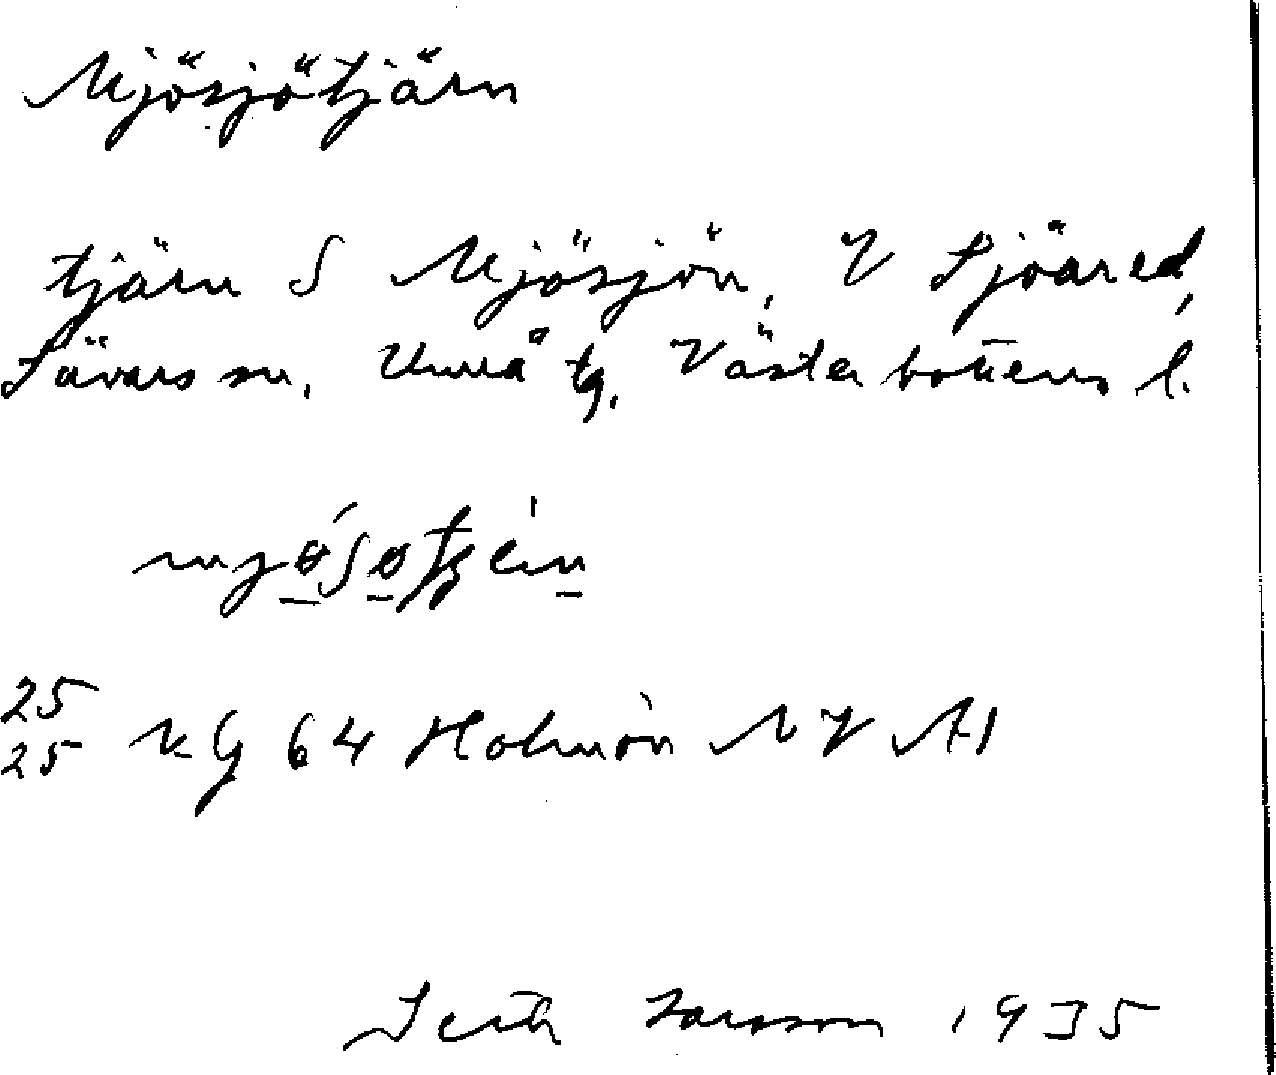 Mjösjötjärn
tjärn S Mjösjön, V Sjöäred,
Sävars sn. Umeå tg. Västerbottens l.
25
25 KG 64 Holmön NV A1
Seth Larsson 1935